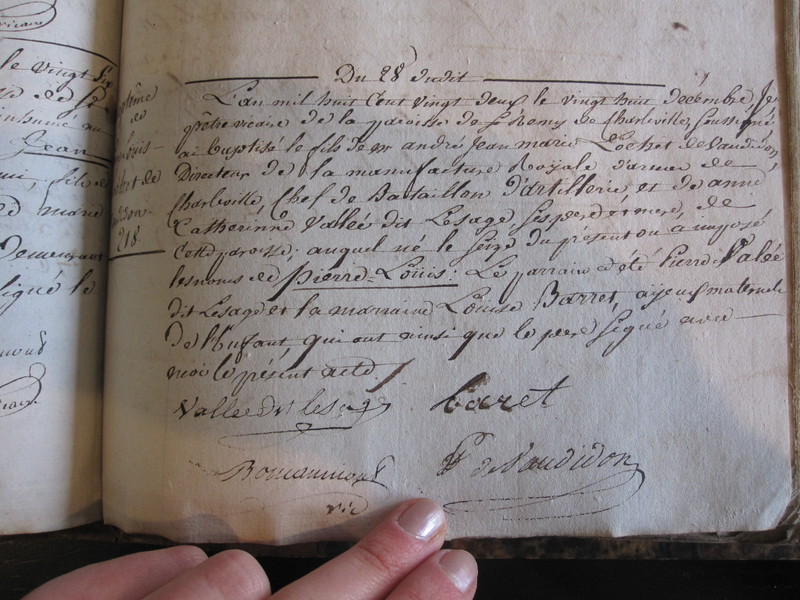 Du 28 dudit
L'an mil huit cent vingt deux le vingt huit décembre, Je
prêtre vicaire de la paroisse de St Remy de Charleville, soussigné,
ai baptisé le fils de Mr andré Jean marie Lochet de Vaudidon,
Directeur de la manufacture Royale d'armes de
Charleville, Chef de Bataillon d'artillerie et de anne
Catherinne Vallée dit Lesage ses père et mère, de
cette paroisse; auquel né le seize du présent on a imposé
les noms de Pierre-Louis: Le parrain a été Pierre Valée
dit Lesage et la marraine Louise Barret, ajeux maternels
de l'Enfant qui ont ainsi que le pere signé avec
moi le présent acte.
Vallee dit lesage
baret
vic
de Vaudidon
218.
Jean
le vingt six